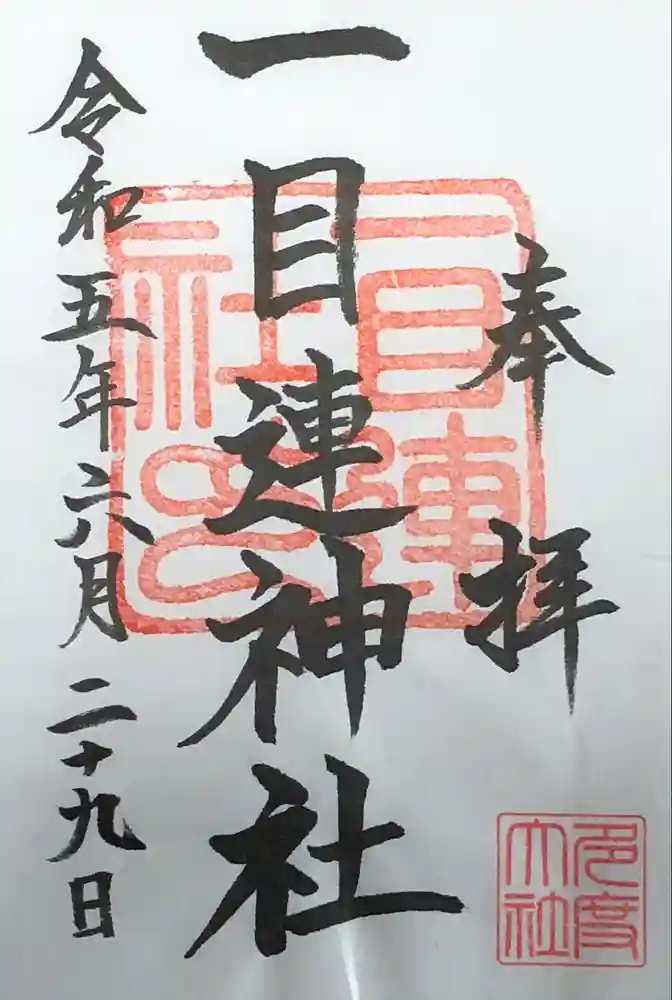 奉拝
一目連神社
令和五年六月二十九日
一目連
社印
多度
大社